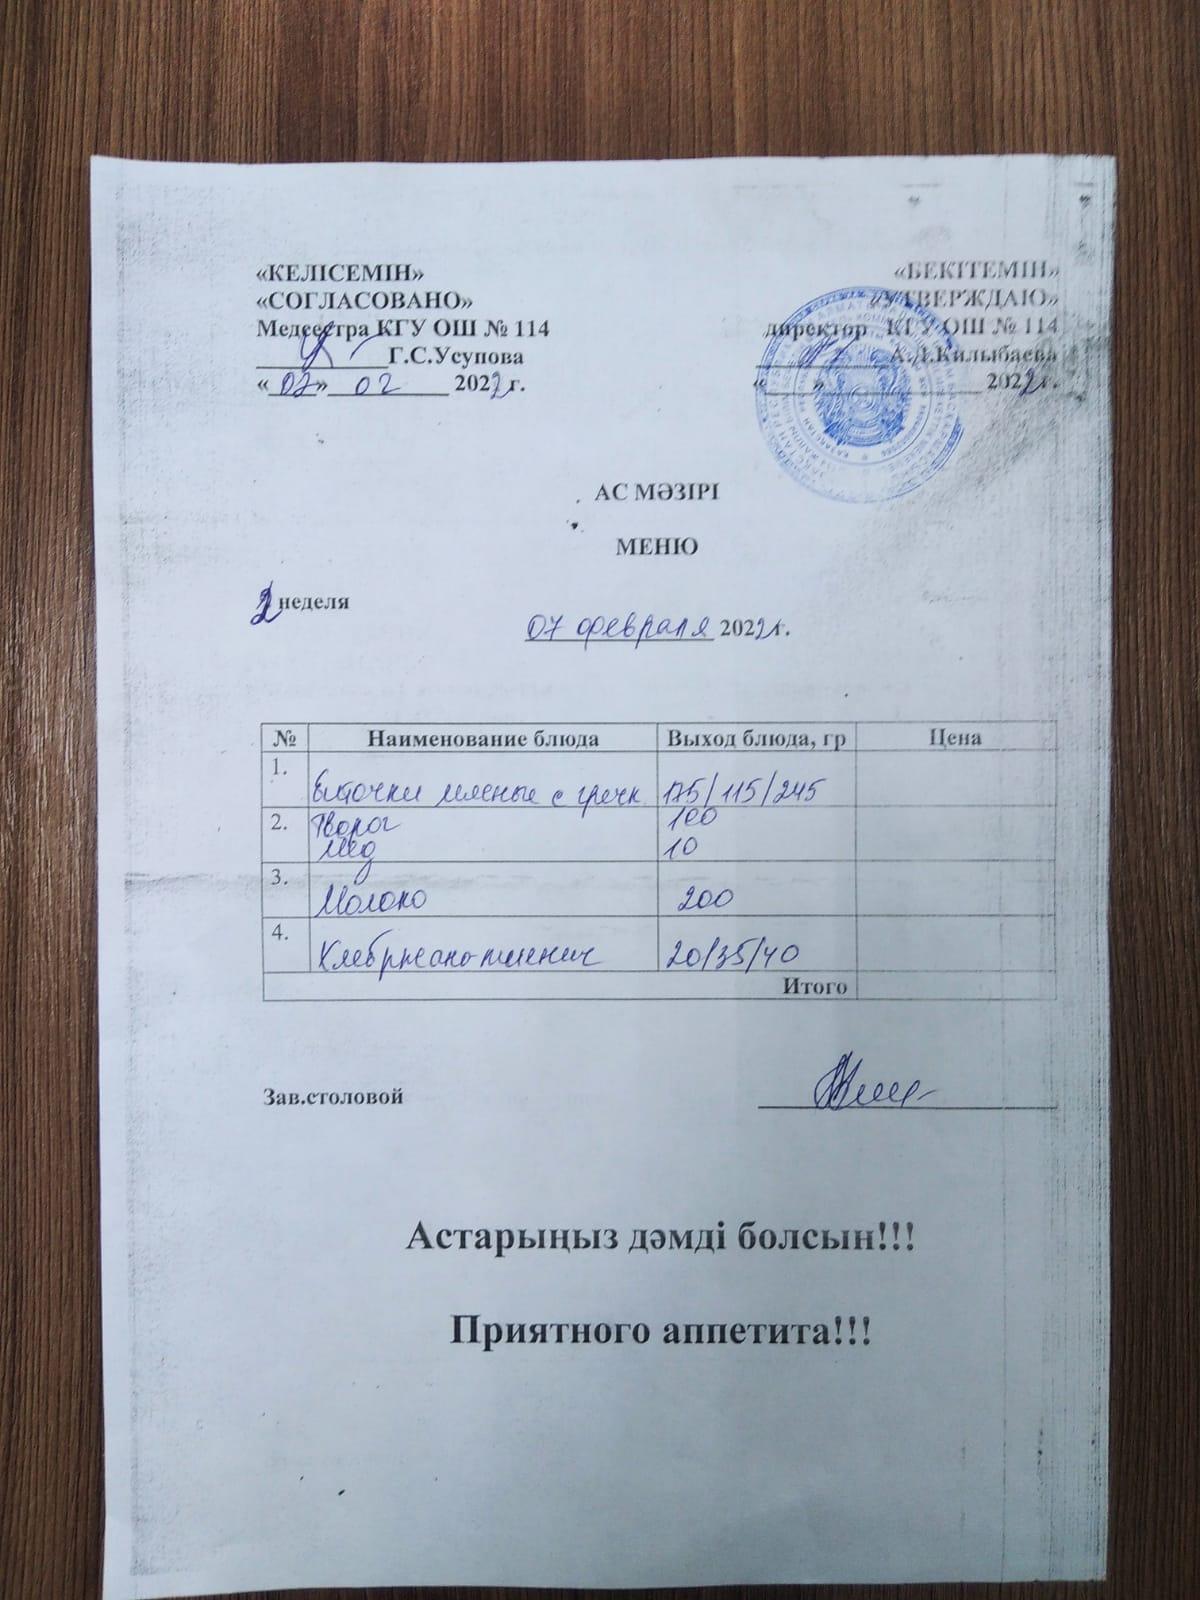 «КЕЛІСЕМІН»
«СОГЛАСОВАНО»
Медсестра КГУ ОШ № 114
Г.С.Усупова
«07» 02 2022 г.
«БЕКІТЕМІН»
«УТВЕРЖДАЮ»
директор КГУ ОШ № 114
А.Д.Килыбаева
«___»___ 2022 г.
АС МӘЗІРІ
МЕНЮ
2 неделя
07 февраля 2022 г.
№ Наименование блюда Выход блюда, гр Цена
1. Биточки мясные с гречк. 175/115/245
2. Творог 100
мёд 10
3. Молоко 200
4. Хлебржано-пшенич 20/35/40
Итого
Зав.столовой
Астарыңыз дәмді болсын!!!
Приятного аппетита!!!